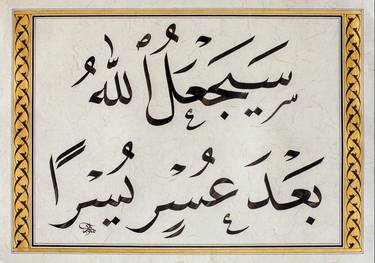 سَيَجْعَلُ ٱللّٰهُ
بَعْدَ عُسْرٍ يُسْرًا